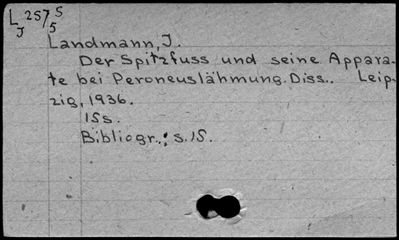 L 257/5 S
J
Landmann, J.
Der Spitzfuss und seine Appara-
te bei Peroneuslähmung. Diss.. Leip-
zig, 1936.
15s.
Bibliogr.: s.15.